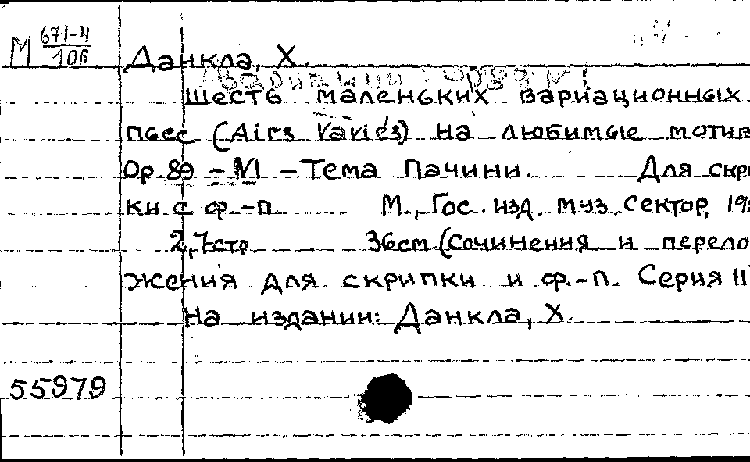 М 671-4/106
Данкла, Х.
Шесть маленьких вариационных
пьес (Airs Variés) на любимые мотив
Op. 89 – №1 – Тема Пачини. Для скри
ки с ф.-п. М., Гос. изд. муз. сектор, 19
2,7стр 36см (Сочинения и перело
жения для скрипки и ф.-п. Серия II
На издании: Данкла, Х.
55979